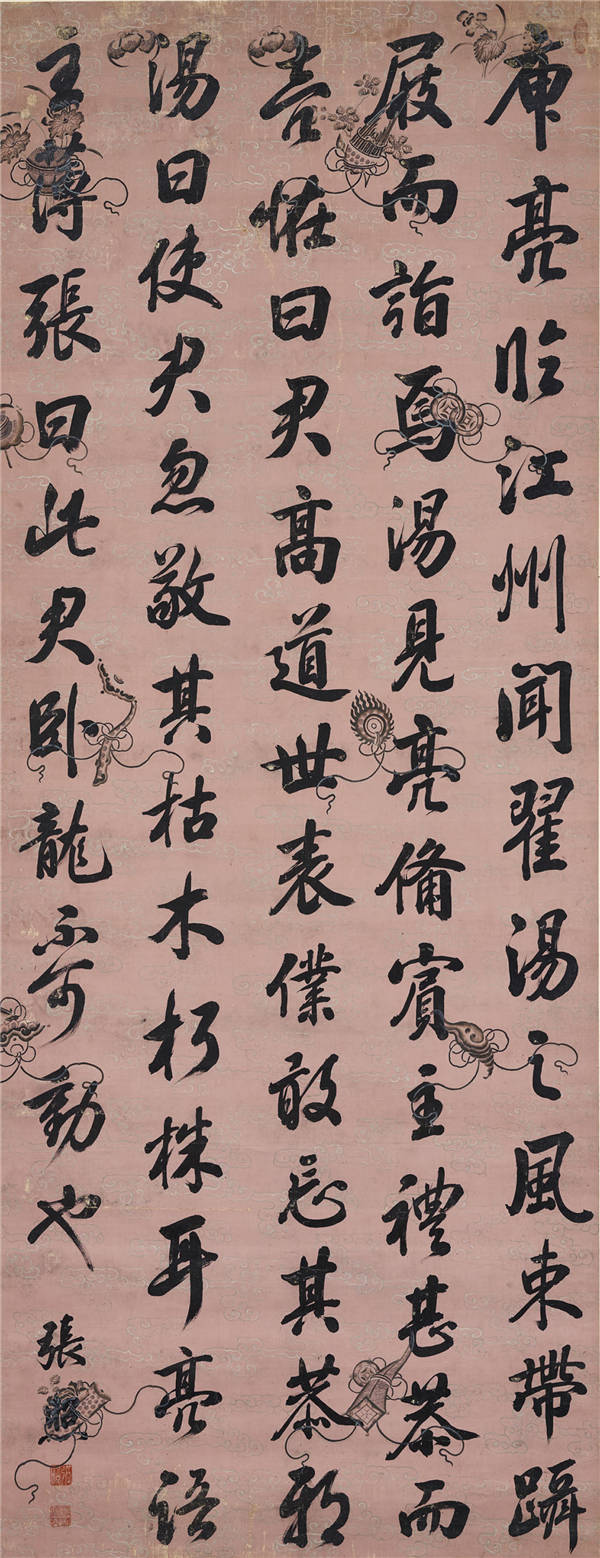 庾亮临江州聞翟湯之風束帶躡
屐而詣焉湯見亮備賓主禮甚恭而
恠曰君高道世表僕敢忘其恭耶
湯曰使君忽敬其枯木朽株耳亮語
主薄張曰此君卧龍不可動也
張照